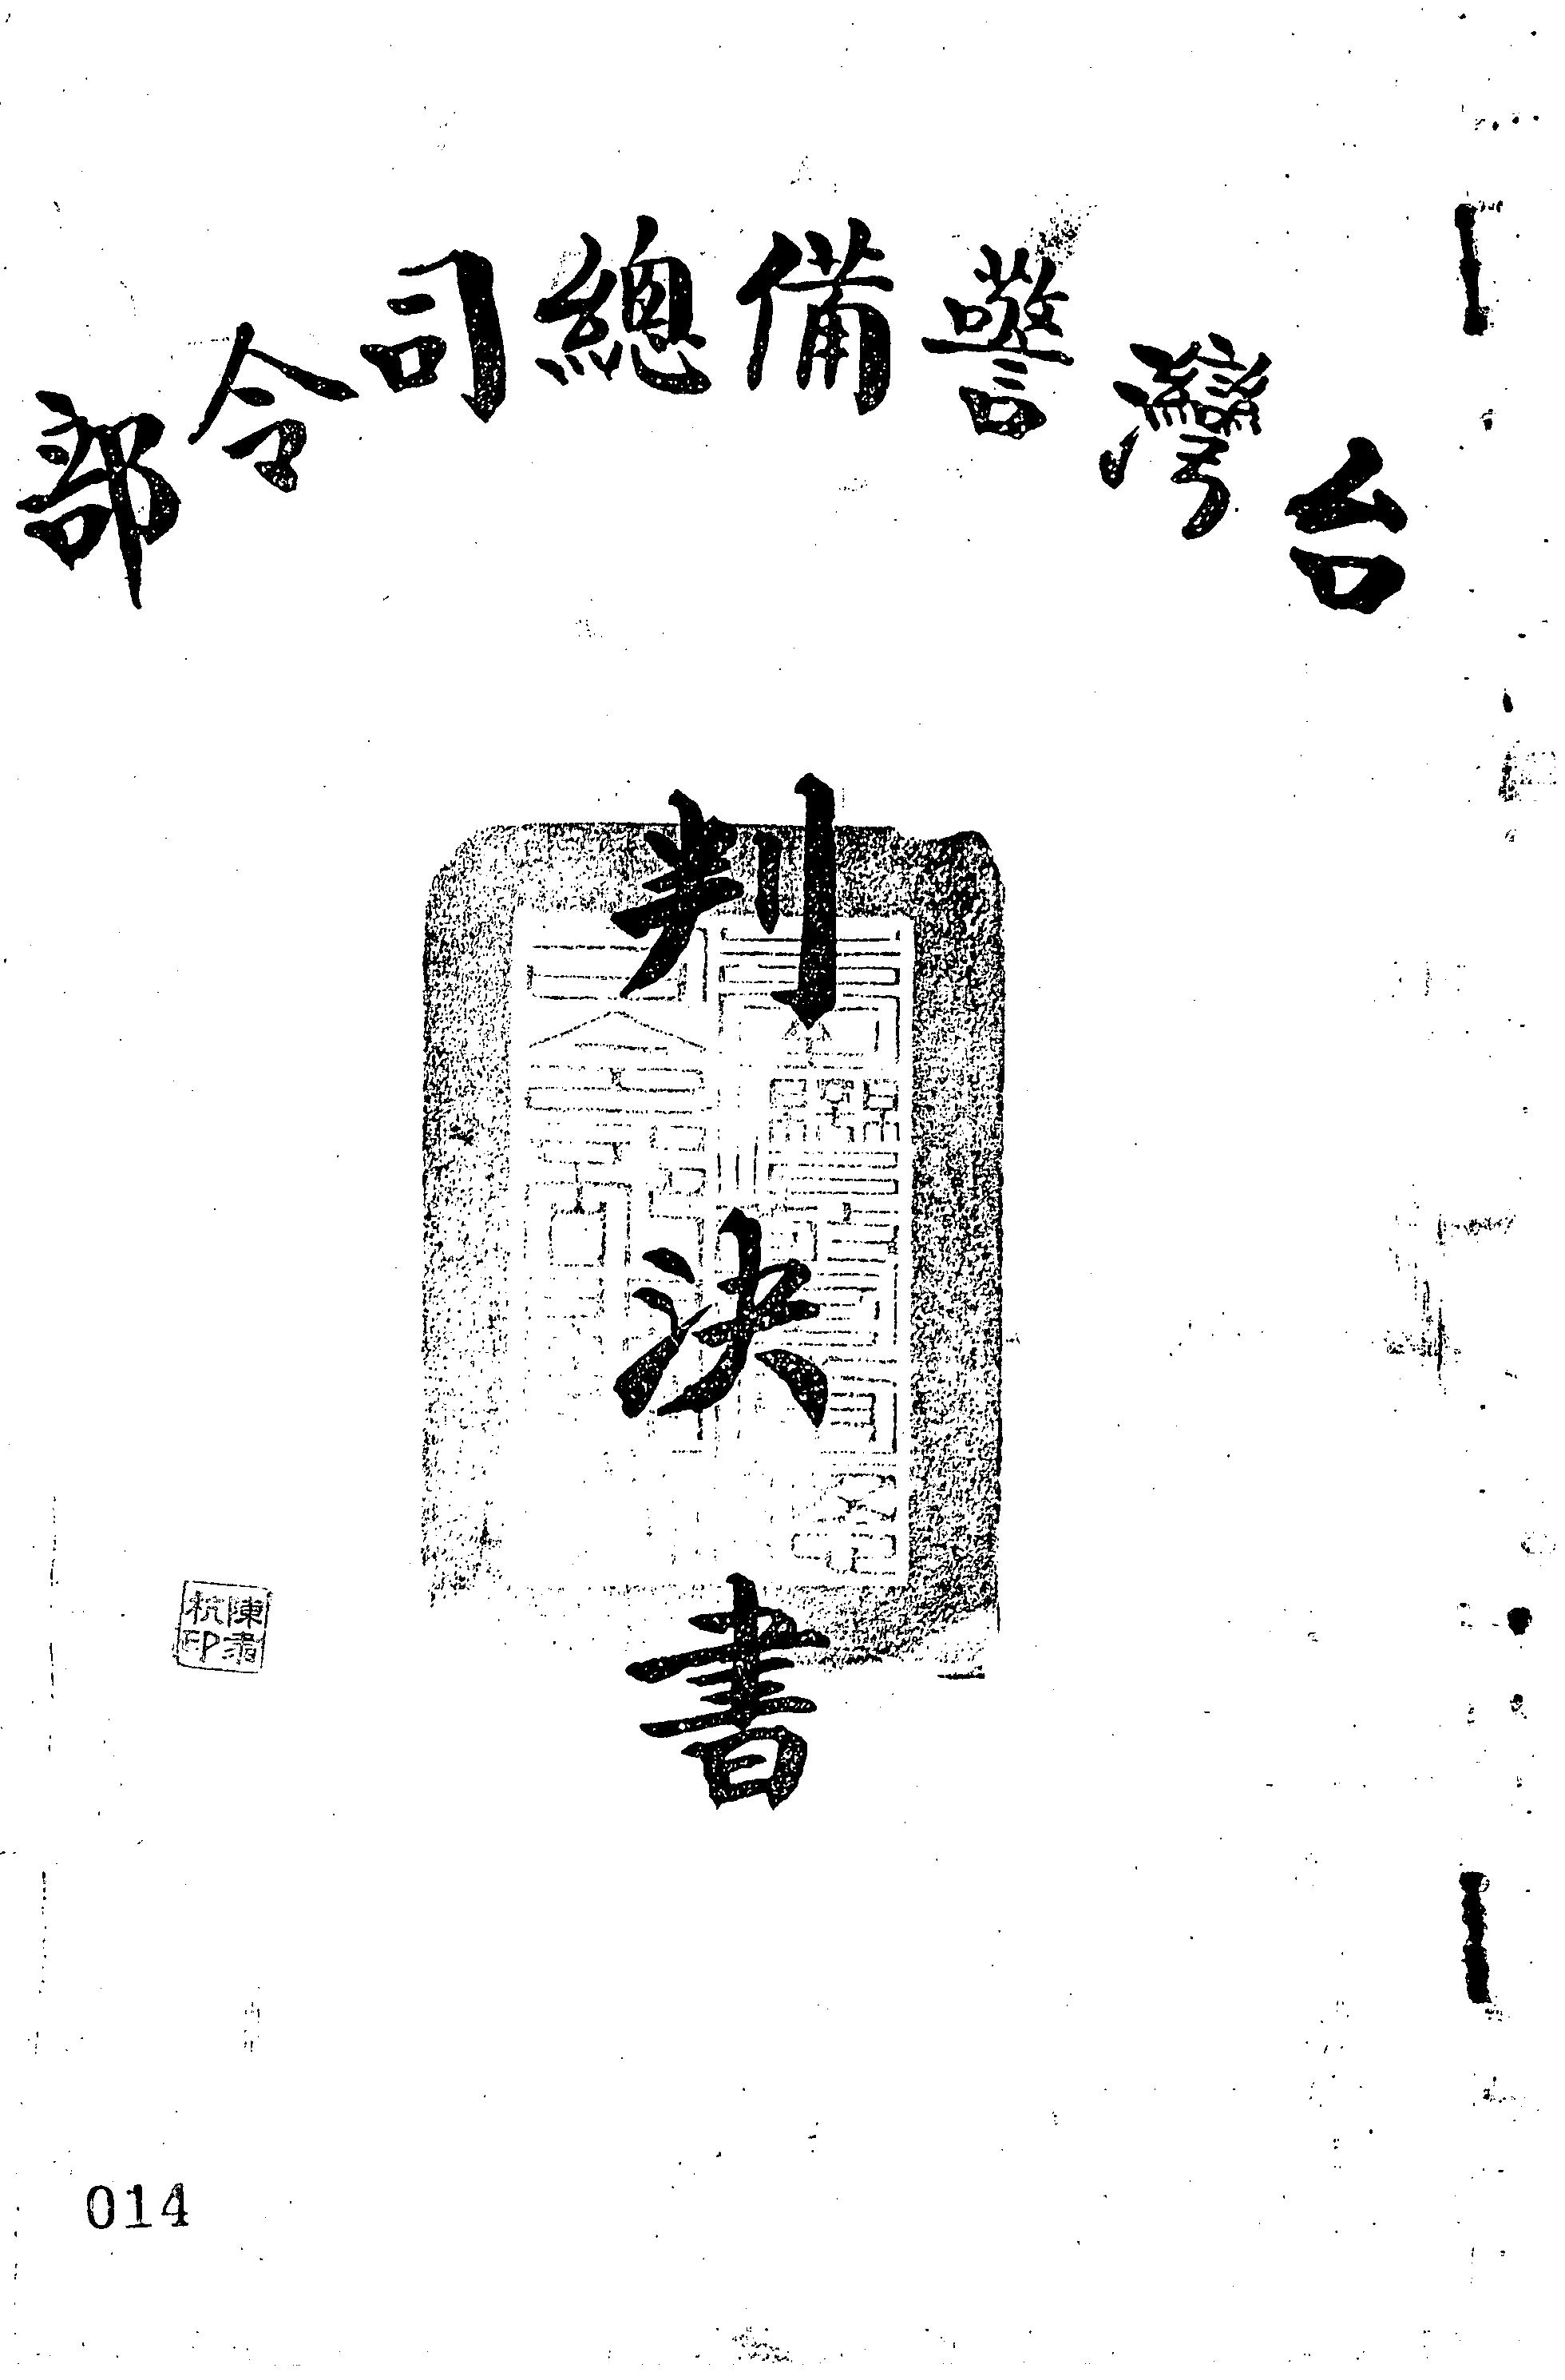 台灣警備總司令部
判決書
陳肅
杭印
014